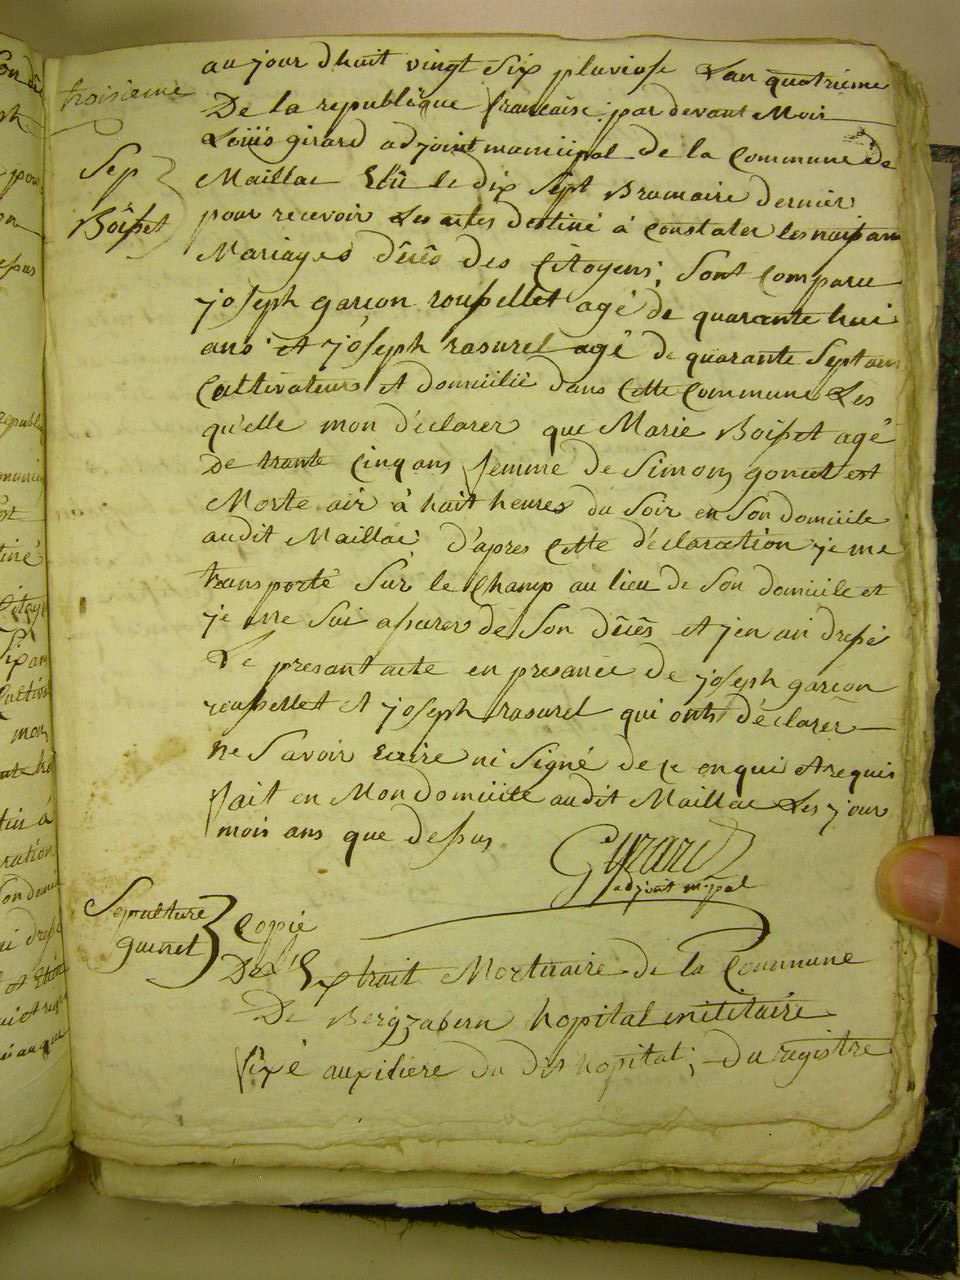 troisieme
au jour dhuit vingt six pluviose Lan quatrieme
De la republique francaise; par devant Moir
Loüis girard adjoint municipal de la Commune de
Sep
Boisset
Maillac Elû le dix sept Brumaire dernier
pour recevoir Les actes destiné à Constater les naissan
Mariages décès des Citoyens; Sont Comparu
joseph garcon roussellet agé de quarante hui
ans et joseph rasurel agé de quarante Sept ans
Cultivateurs et domicilié dans Cette Commune Les
qu'elle mon déclarer que Marie Boisset agé
De trante Cinq ans femme de Simon gonet est
Morte air à huit heures du Soir en Son domicile
audit Maillac d'apres Cette déclaration je me
transporté Sur le Champ au lieu de Son domicile et
je me Sui assurer de Son décès et j'en ai dressé
Le presant acte en presance de joseph garcon
roussellet et joseph rasurel qui onts déclarer
ne Savoir Ecrire ni Signé de Ce enqui et requis
fait en Mon domicile audit Maillac Les jour
mois ans que dessus
Girard
adjoint mpal
Sepulture
guinet
Copie
De L'Extrait Mortuaire de la Commune
De Bergzabern hopital militaire
fixé auxiliere du dit hopital; du registre